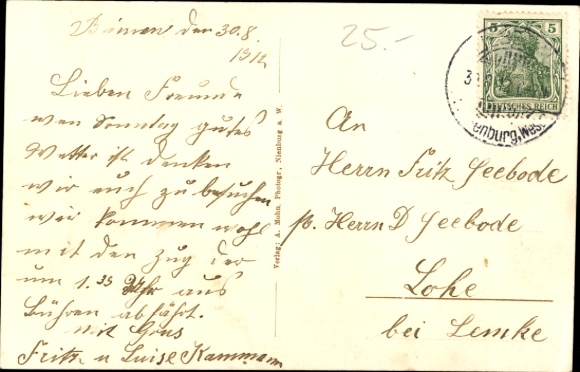 Binnen den 30.8.
1912
Lieben Freunde
wen Sonntag gutes
Wetter ist denken
wir euch zu besuchen
wir kommen wohl
mit den Zug der
um 1.35 Uhr aus
Bühren abfährt.
mit Grus
Fritz u Luise Kammann
Verlag: A. Mohn, Photogr., Nienburg a. W.
25.-
5 5
DEUTSCHES REICH
An
Herrn Fritz Seebode
p. Herrn D Seebode
Lohe
bei Lemke